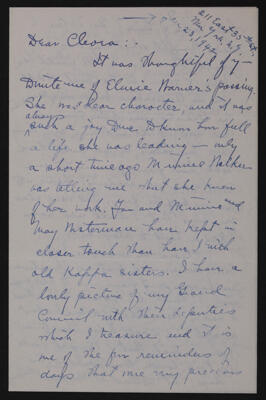 211 East 35th St.
New York, N.Y.
23, 1942
Dear Cleora:-
It was thoughtful of you
write me of Elmie Warner's passing.
She was dear character, and it was
always
such a joy Due. I know how full
a life she was leading — only
a short time ago Minnie Walker
was telling me that she knew
of her work. You and Minnie and
May Waterman have kept in
closer touch than have I with
old Kappa sisters. I have a
lovely picture of my Grand
Council with their deputies
which I treasure and it is
one of the few reminders of
days that were very precious